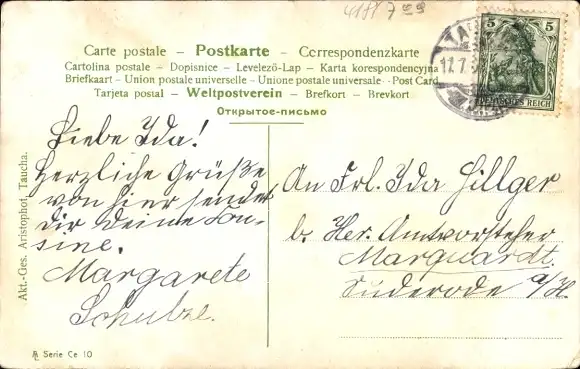 Carte postale – Postkarte – Correspondenzkarte
Cartolina postale – Dopisnice – Levelező-Lap – Karta korespondencyjna
Briefkaart - Union postale universelle - Unione postale universale - Post Card
Tarjeta postal – Weltpostverein – Brefkort – Brevkort
Открытое-письмо
5 5
DEUTSCHES REICH
TAU
17.7
Liebe Ida!
Herzliche Grüße
von hier sendet
Dir Deine Cou-
sine.
Margarete
Schulze.
An Frl. Ida Hillger
b. Her. Amtvorsteher
Marquardt.
Suderode a/H.
Akt.-Ges. Aristophot, Taucha.
Serie Ce 10